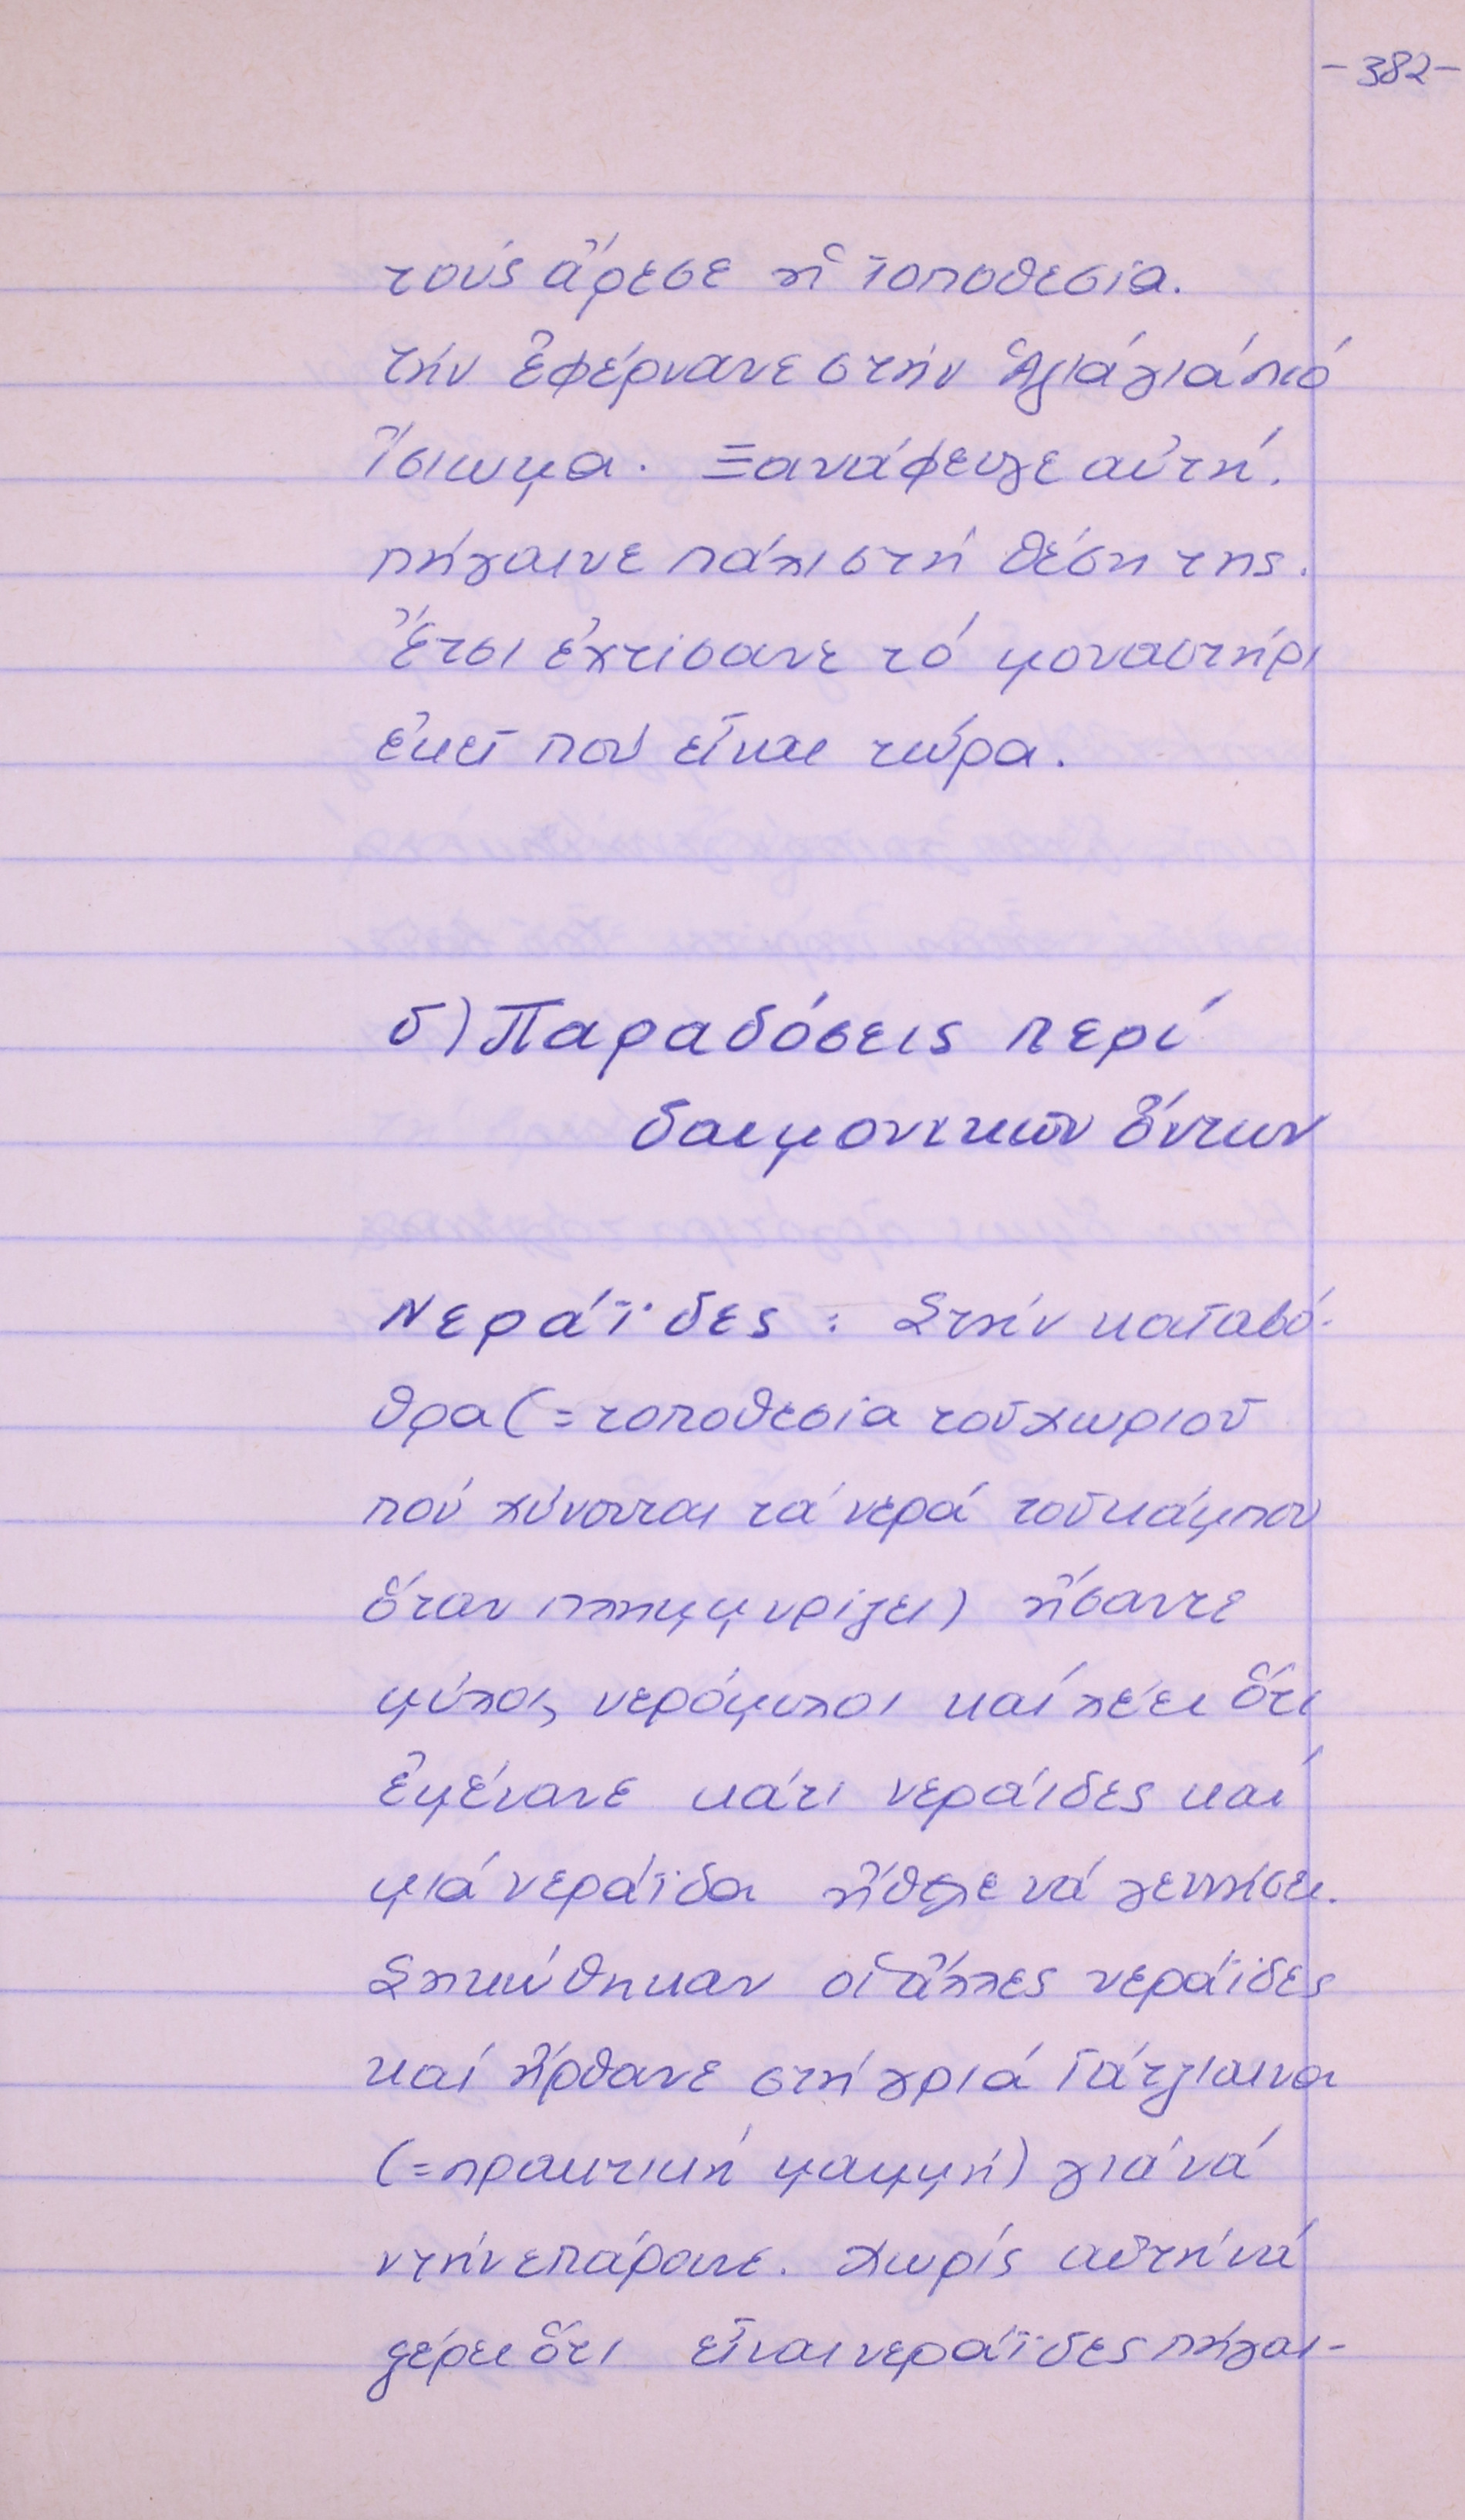 -382-
τούς ἄρεσε ἡ τοποθεσία.
τήν ἐφέρνανε στήν Ἁγιάγιάπιό
ἴσιωμα. Ξανάφευγε αὐτή.
πήγαινε πάλι στή θέση της.
Ἔτσι ἐχτίσανε τό μοναστήρι
ἐκεῖ πού εἶναι τώρα.
δ) Παραδόσεις περί
δαιμονικῶν ὄντων
Νεράϊδες: Στήν καταβό-
θρα (=τοποθεσία τοῦ χωριοῦ
πού χύνονται τά νερά τοῦ κάμπου
ὅταν πλημμυρίζει) ἤσαντε
μύλοι, νερόμυλοι καί λέει ὅτι
ἐμένανε κάτι νεράιδες καί
μιά νεράϊδα ἤθελε νά γεννήσει.
Σηκώθηκαν οἱ ἄλλες νεράϊδες
καί ἤρθανε στή γριά Τάτζιαινα
(=πρακτική μαμμή) γιά νά
ντήνεπάρουνε. χωρίς αὐτή νά
ξέρει ὅτι εἶναι νεράϊδες πήγαι-